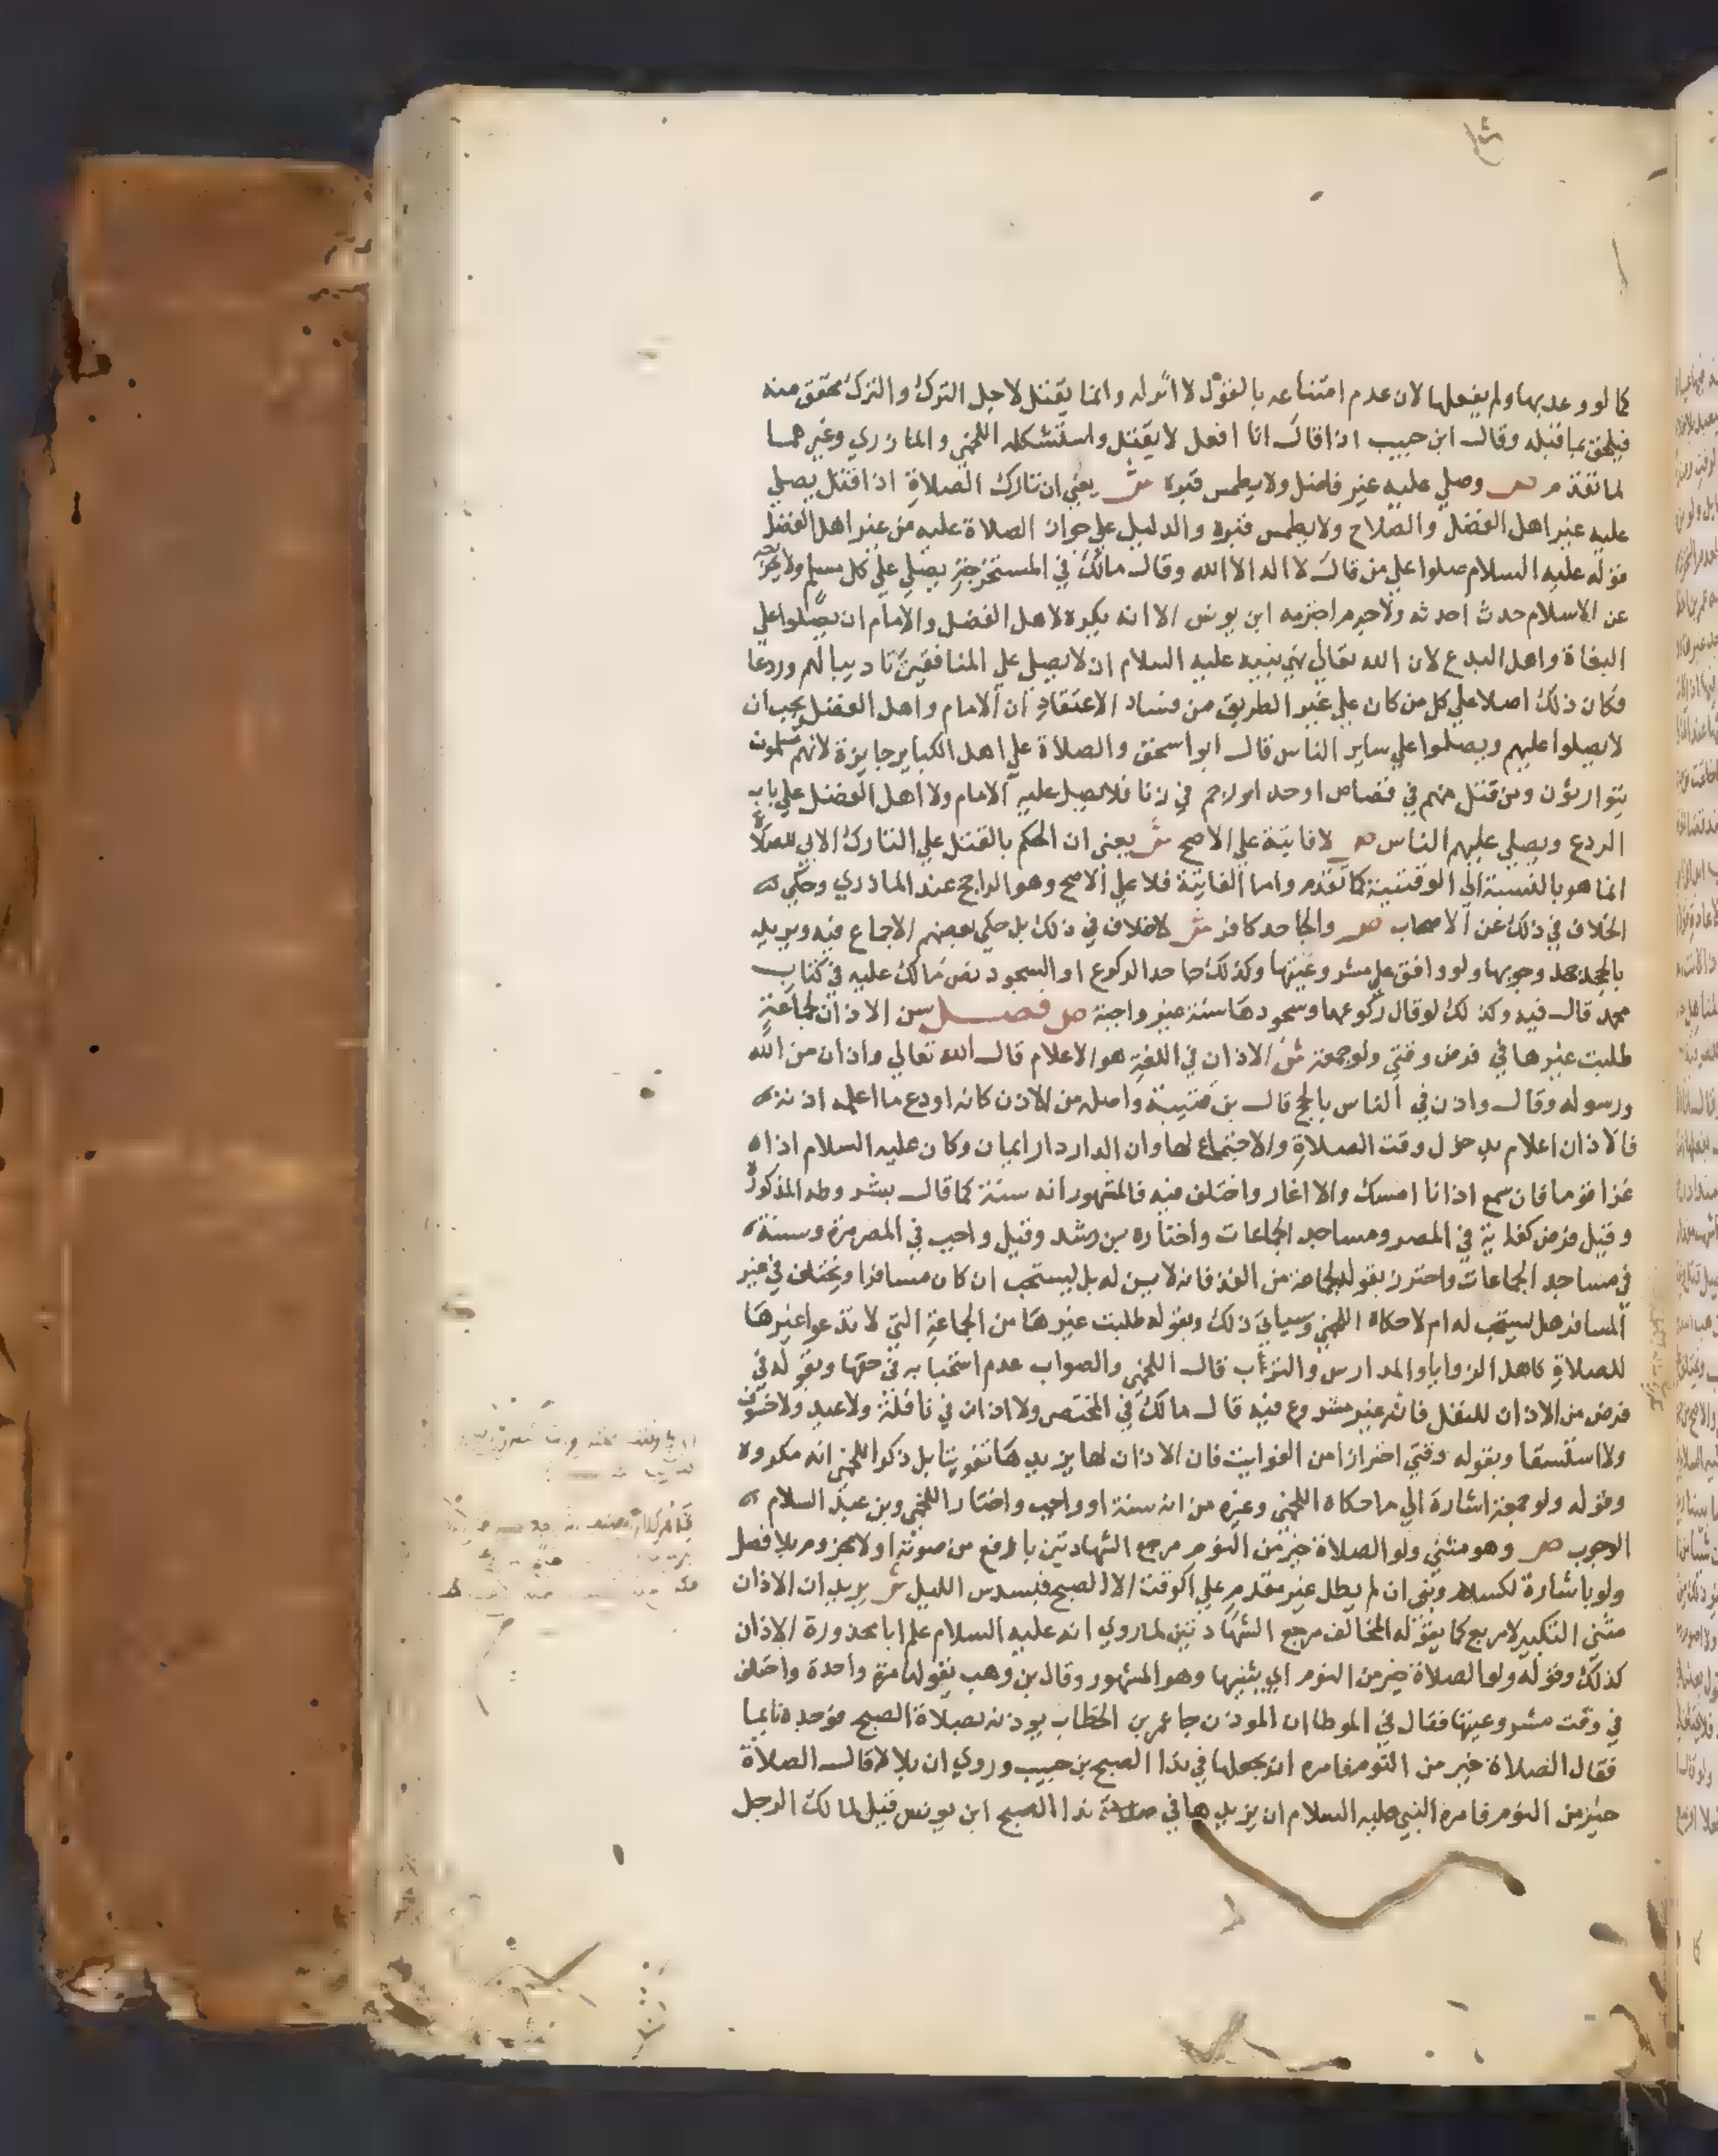 كما لو وعد بها ولم يفعلها لان عدم امتناعه بالقول لا اثر له وانما يقتل لاجل الترك والترك محقق منه
فيلحق بما قبله وقال ابن حبيب اذا قال انا افعل لا يقتل واستشكله اللخمي والمازري وغيرهما
لما تقدم ص وصلي عليه غير فاضل ولا يطمس قبره ش يعني ان تارك الصلاة اذا قتل يصلي
عليه غير اهل الفضل والصلاح ولا يطمس قبره والدليل علي جواز الصلاة عليه من غير اهل الفضل
قوله عليه السلام صلوا علي من قال لا اله الا الله وقال مالك في المستخرجة يصلي علي كل مسلم ولا يخرجه
عن الاسلام حدث احدثه ولا جرم اجترمه ابن يونس الا انه يكره لاهل الفضل والامام ان يصلوا علي
البغاة واهل البدع لان الله تعالي نهي نبيه عليه السلام ان لا يصلي علي المنافقين تاديبا لهم وردعا
فكان ذلك اصلا علي كل من كان علي غير الطريق من فساد الاعتقاد ان الامام واهل الفضل يجب ان
لا يصلوا عليهم ويصلوا علي ساير الناس قال ابو اسحق والصلاة علي اهل الكباير جايزة لانهم مسلمون
يتوارثون ومن قتل منهم في قصاص او حد او رجم في زنا فلا يصل عليه الامام ولا اهل الفضل علي باب
الردع ويصلي عليهم الناس ص لا فايتة علي الاصح ش يعني ان الحكم بالقتل علي التارك الابي للصلاة
انما هو بالنسبة الي الوقتية كما تقدم واما الفايتة فلا علي الاصح وهو الراجح عند المازري وحكي
الخلاف في ذلك عن الاصحاب ص والجاحد كافر ش لا خلاف في ذلك بل حكي بعضهم الاجماع فيه ويريد
بالجحد جحد وجوبها ولو وافق علي مشروعيتها وكذلك جاحد الركوع او السجود نص مالك عليه في كتاب
محمد قال فيه وكذلك لو قال ركوعها وسجودها سنة غير واجبة ص فصل سن الاذان لجماعة
طلبت غيرها في فرض وقتي ولو جمعة ش الاذان في اللغة هو الاعلام قال الله تعالي واذان من الله
ورسوله وقال واذن في الناس بالحج قال بن قتيبة واصله من الاذن كانه اودع ما اعلمه اذنه
فالاذان اعلام بدخول وقت الصلاة والاجتماع لها وان الدار دار ايمان وكان عليه السلام اذا
غزا قوما فان سمع اذانا امسك والا اغار واختلف فيه فالمشهور انه سنة كما قال بشروطه المذكورة
وقيل فرض كفاية في المصر ومساجد الجماعات واختاره بن رشد وقيل واجب في المصر مرة وسنة
في مساجد الجماعات واحترز بقوله لجماعة من الفذ فانه لا يسن له بل يستحب ان كان مسافرا ويختلف في غير
المسافر هل يستحب له ام لا حكاه اللخمي وسياتي ذلك وبقوله طلبت غيرها من الجماعة التي لا تدعوا غيرها
للصلاة كاهل الزوايا والمدارس والترب قال اللخمي والصواب عدم استحبابه في حقها وبقوله في
فرض من الاذان للنفل فانه غير مشروع فيه قال مالك في المختصر ولا اذان في نافلة ولا عيد ولا خسوف
ولا استسقا وبقوله وقتي احترازا من الفوايت فان الاذان لها يزيدها تفويتا بل ذكر اللخمي انه مكروه
وقوله ولو جمعة اشارة الي ما حكاه اللخمي وغيره من انه سنة او واجب واختار اللخمي وبن عبد السلام
الوجوب ص وهو مثني ولو الصلاة خير من النوم مرجع الشهادتين بارفع من صوته اولا مجزوم بلا فصل
ولو باشارة لكسلام وبني ان لم يطل غير مقدم علي الوقت الا الصبح فبسدس الليل ش يريد ان الاذان
مثني التكبير لا مربع كما يقوله المخالف مرجع الشهادتين لما روي انه عليه السلام علم ابا محذورة الاذان
كذلك وقوله ولو الصلاة خير من النوم اي يثنيها وهو المشهور وقال بن وهب يقولها مرة واحدة واختلف
في وقت مشروعيتها فقال في الموطا ان الموذن جا عمر بن الخطاب يوذنه بصلاة الصبح فوجده نايما
فقال الصلاة خير من النوم فامره ان يجعلها في ندا الصبح بن حبيب وروي ان بلالا قال الصلاة
خير من النوم فامره النبي عليه السلام ان يزيدها في ندا الصبح ابن يونس قيل لمالك الرجل